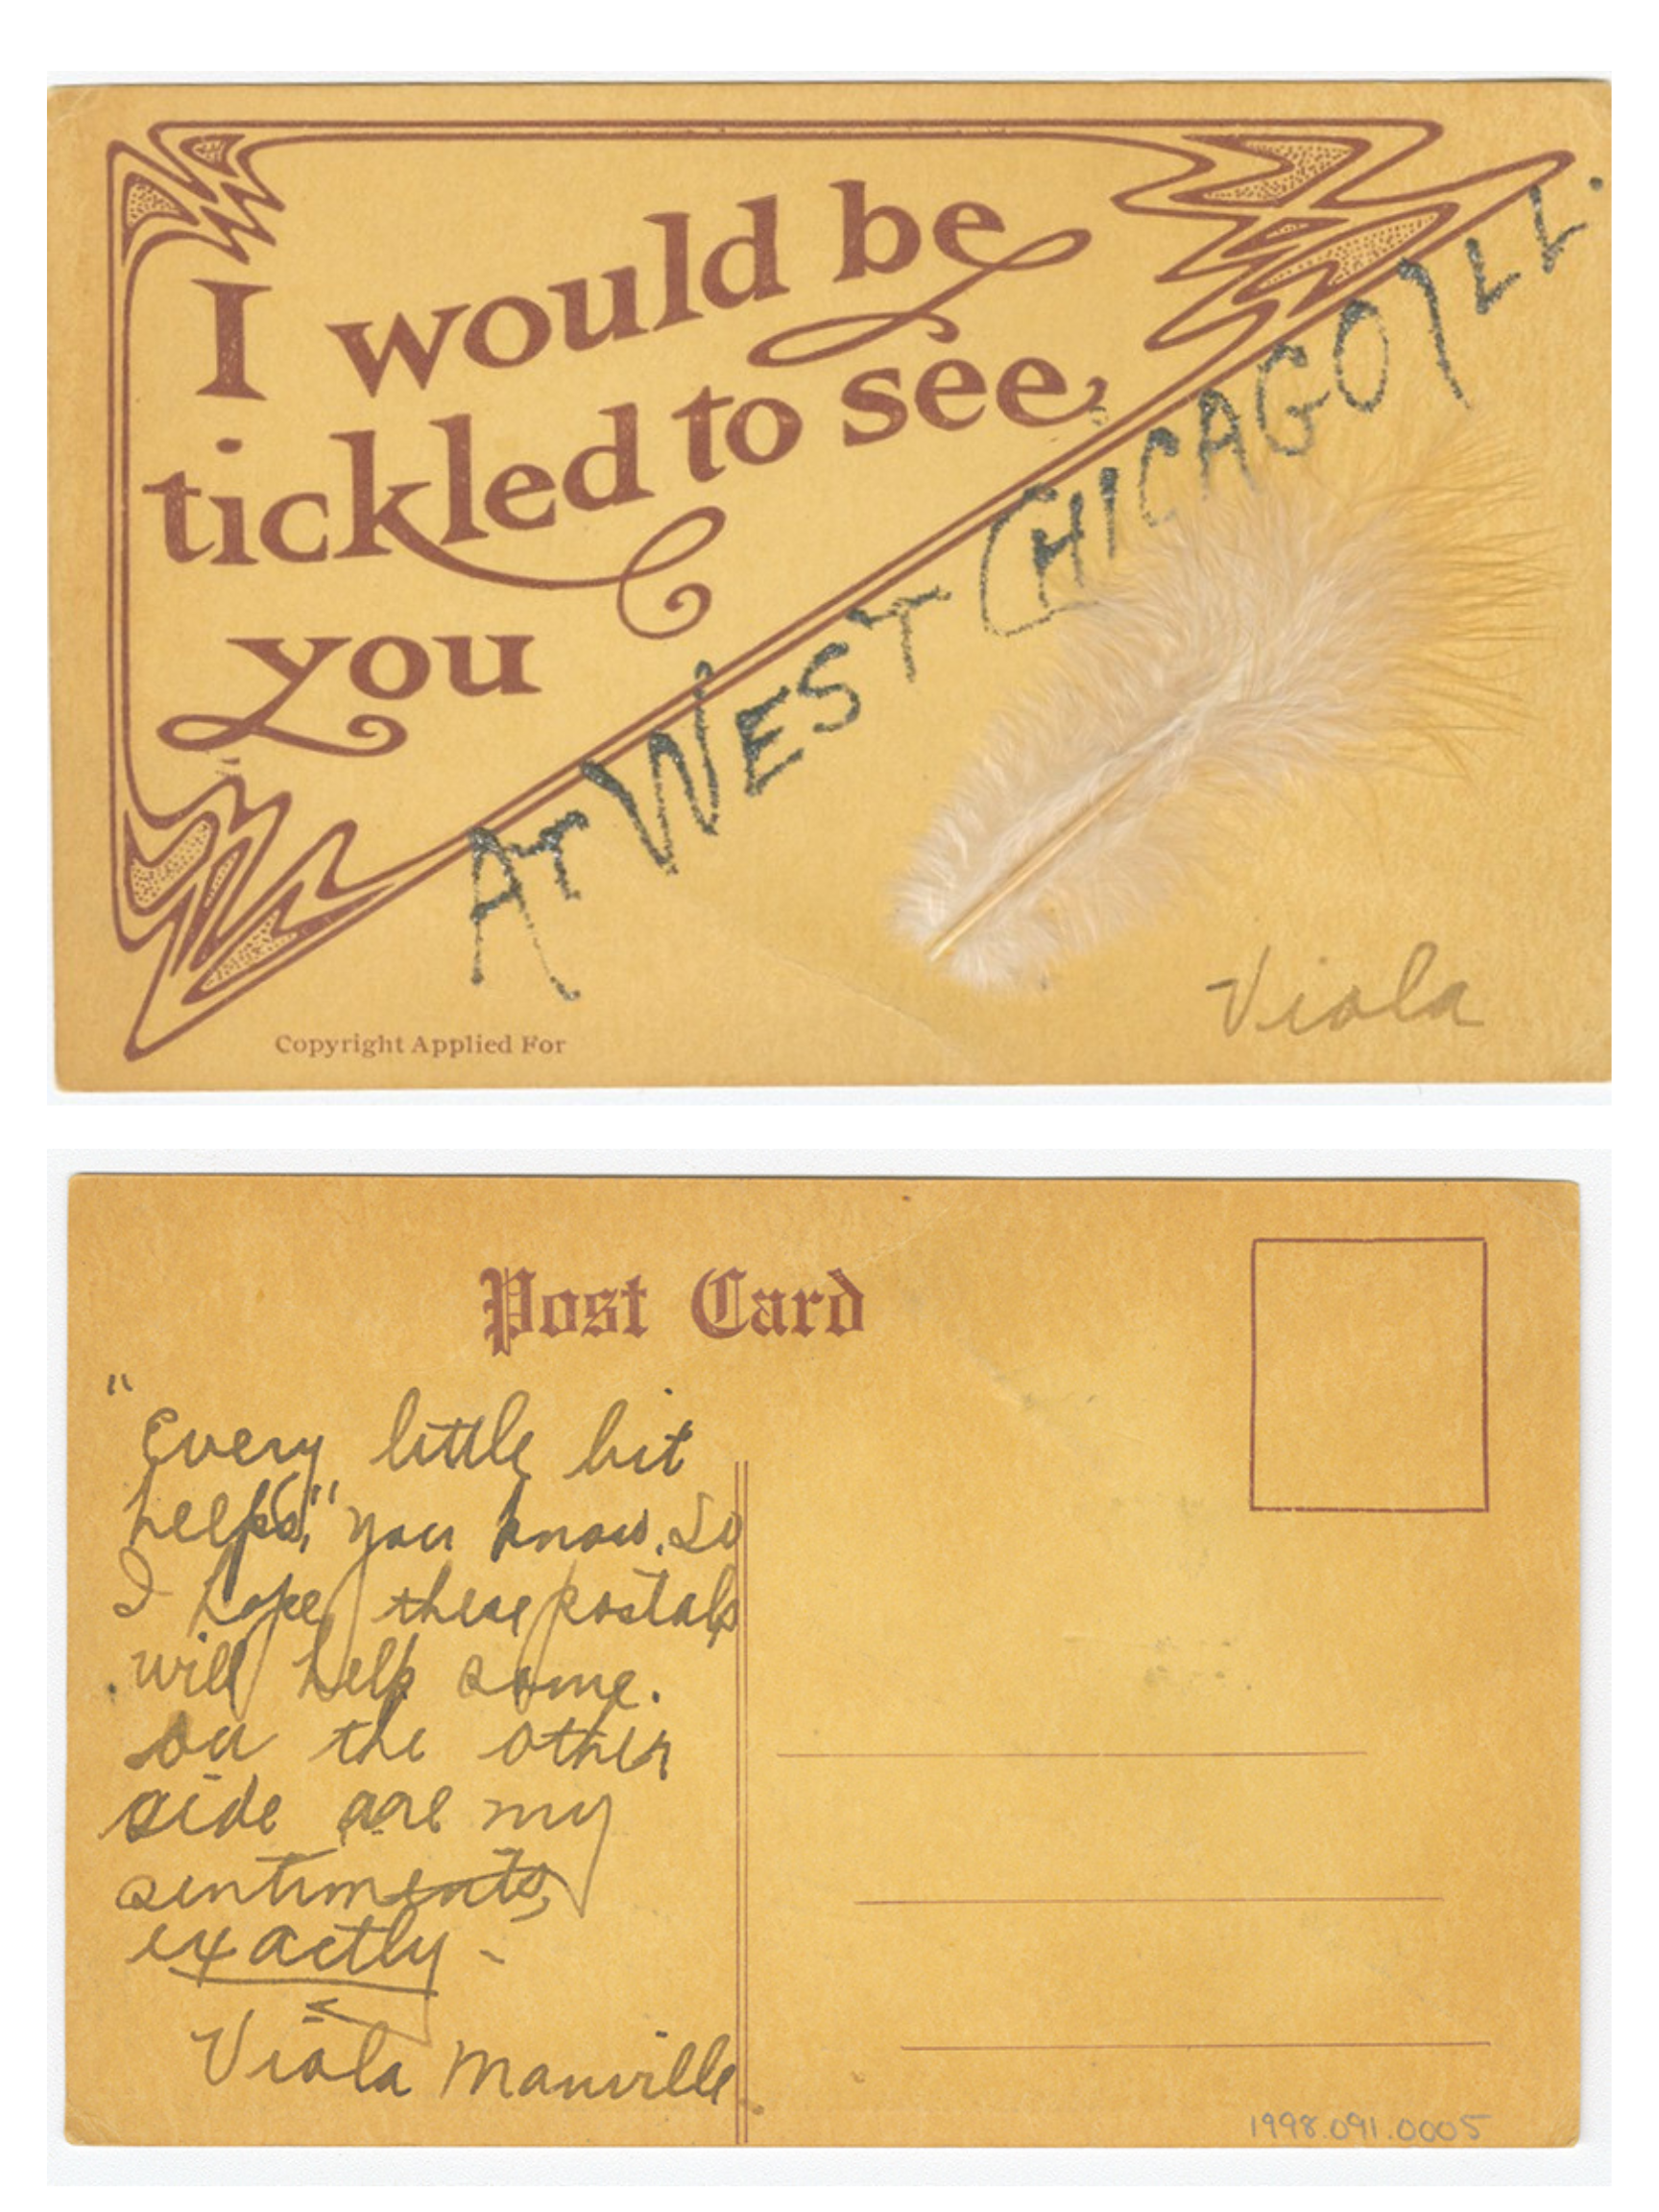 I would be
tickled to see
you
AT WEST CHICAGO ILL.
Viola
Copyright Applied For
Post Card
"Every little bit
helps," you know. So
I hope these postals
will help some.
On the other
side are my
sentiments,
exactly -
Viola Manville.
1998.091.0005